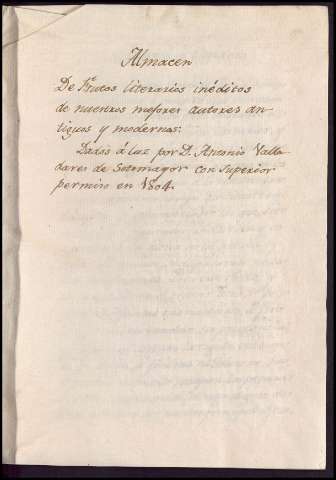 Almacen
De Frutos literarios inéditos
de nuestros mejores autores an-
tiguos y modernos:
Dados á luz por D. Antonio Valla-
dares de Sotomayor con Superior
permiso en 1804.